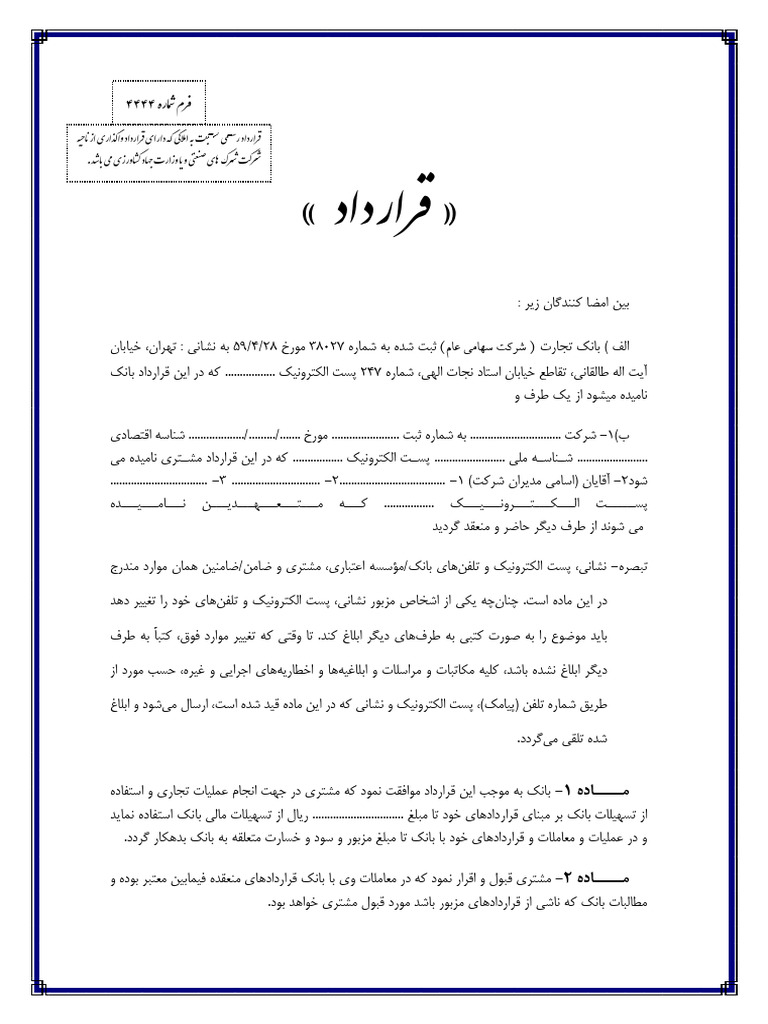 فرم شماره ۴۴۴۴
قرارداد رسمی نسبت به املاکی که دارای قرارداد واگذاری از ناحیه
شرکت شهرک های صنعتی و یا وزارت جهاد کشاورزی می باشد.
« قرارداد »
بین امضا کنندگان زیر :
الف ) بانک تجارت ( شرکت سهامی عام) ثبت شده به شماره ۳۸۰۲۷ مورخ ۵۹/۴/۲۸ به نشانی : تهران، خیابان
آیت اله طالقانی، تقاطع خیابان استاد نجات الهی، شماره ۲۴۷ پست الکترونیک ................. که در این قرارداد بانک
نامیده میشود از یک طرف و
ب)۱- شرکت ............................... به شماره ثبت ....................... مورخ ......./........./................... شناسه اقتصادی
........................ شناسه ملی ........................ پست الکترونیک ................. که در این قرارداد مشتری نامیده می
شود۲- آقایان (اسامی مدیران شرکت) ۱- ....................................۲- .............................. ۳- .................................
پست الکترونیک ................. که متعهدین نامیده
می شوند از طرف دیگر حاضر و منعقد گردید
تبصره- نشانی، پست الکترونیک و تلفن‌های بانک/مؤسسه اعتباری، مشتری و ضامن/ضامنین همان موارد مندرج
در این ماده است. چنان‌چه یکی از اشخاص مزبور نشانی، پست الکترونیک و تلفن‌های خود را تغییر دهد
باید موضوع را به صورت کتبی به طرف‌های دیگر ابلاغ کند. تا وقتی که تغییر موارد فوق، کتباً به طرف
دیگر ابلاغ نشده باشد، کلیه مکاتبات و مراسلات و ابلاغیه‌ها و اخطاریه‌های اجرایی و غیره، حسب مورد از
طریق شماره تلفن (پیامک)، پست الکترونیک و نشانی که در این ماده قید شده است، ارسال می‌شود و ابلاغ
شده تلقی می‌گردد.
مــــاده ۱- بانک به موجب این قرارداد موافقت نمود که مشتری در جهت انجام عملیات تجاری و استفاده
از تسهیلات بانک بر مبنای قراردادهای خود تا مبلغ ............................... ریال از تسهیلات مالی بانک استفاده نماید
و در عملیات و معاملات و قراردادهای خود با بانک تا مبلغ مزبور و سود و خسارت متعلقه به بانک بدهکار گردد.
مــــاده ۲- مشتری قبول و اقرار نمود که در معاملات وی با بانک قراردادهای منعقده فیمابین معتبر بوده و
مطالبات بانک که ناشی از قراردادهای مزبور باشد مورد قبول مشتری خواهد بود.